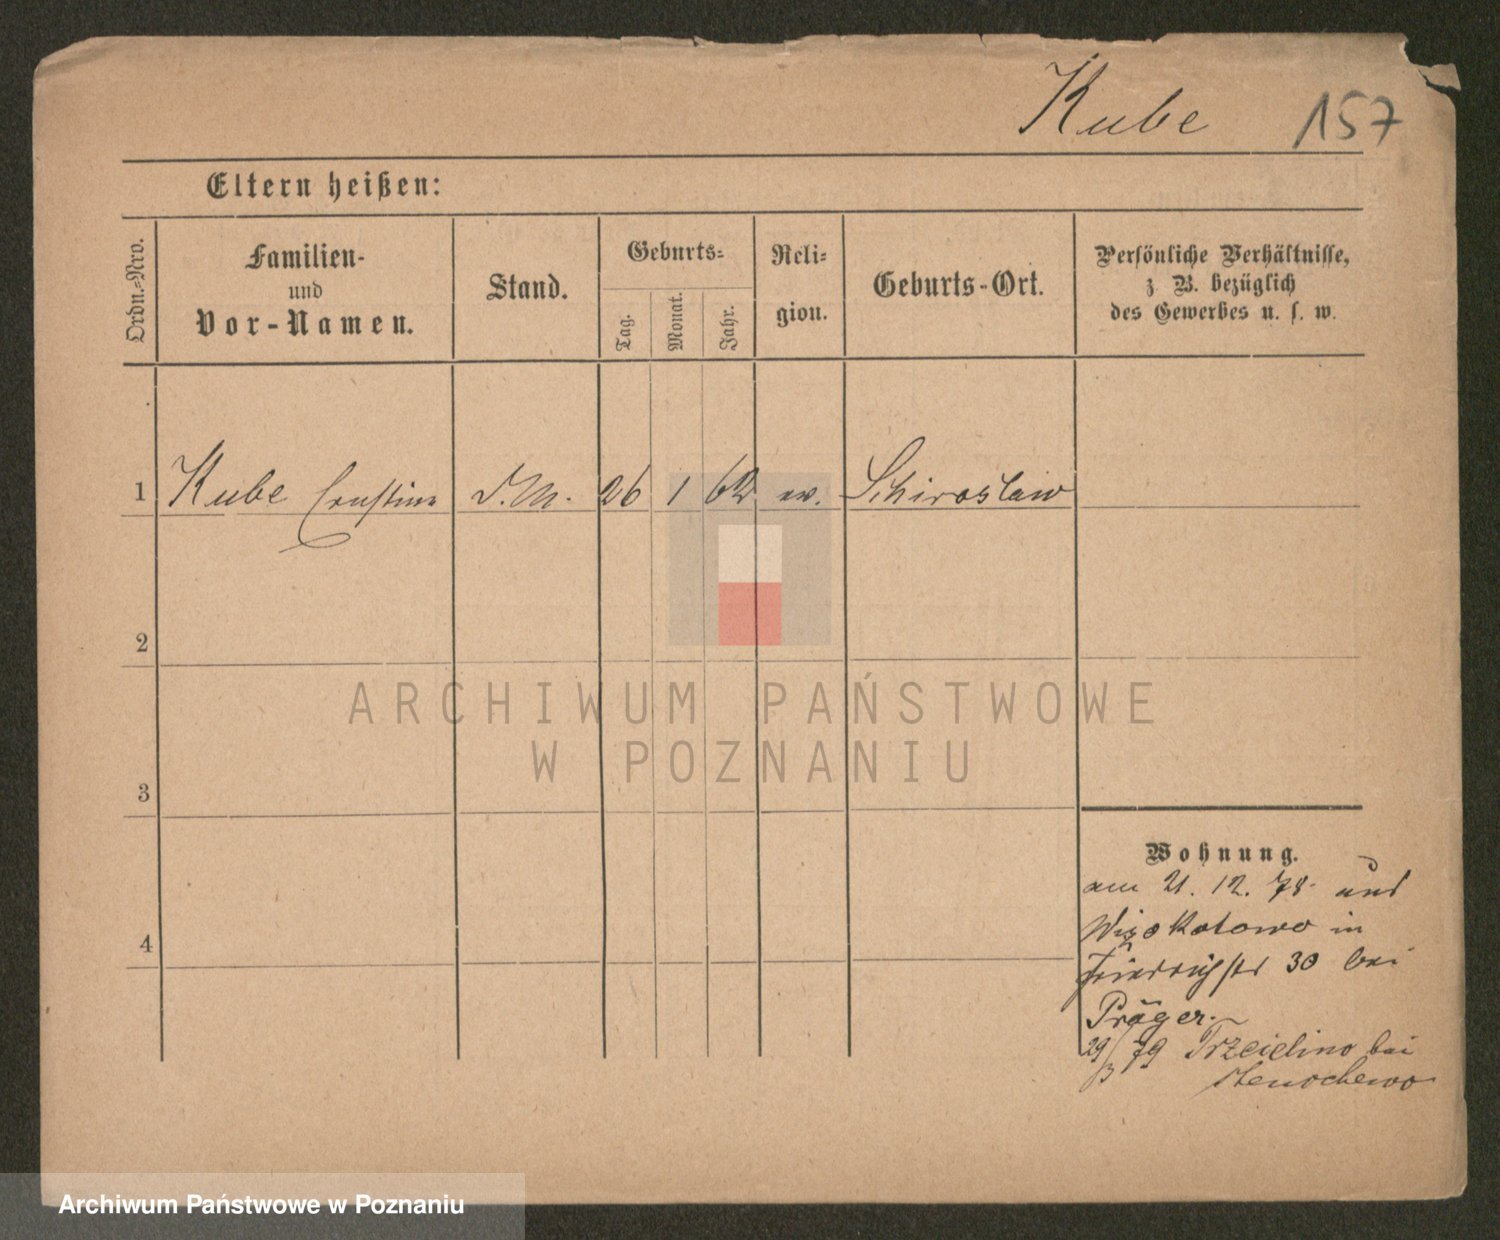 Kube 157
Eltern heißen:
Ordn.=Nro.
Familien-
und
Vor-Namen.
Stand.
Geburts=
Tag.
Monat.
Jahr.
Reli=
gion.
Geburts-Ort.
Persönliche Verhältnisse,
z B. bezüglich
des Gewerbes u. s. w.
1 Kube Ernstine D.M. 26 1 62 ev. Schiroslaw
2
3
4
Wohnung.
am 21. 12. 78. und
in
Friedrichstr 30 bei
Präger.
29/3 79 Trzcielino bei
ARCHIWUM PAŃSTWOWE
W POZNANIU
Archiwum Państwowe w Poznaniu